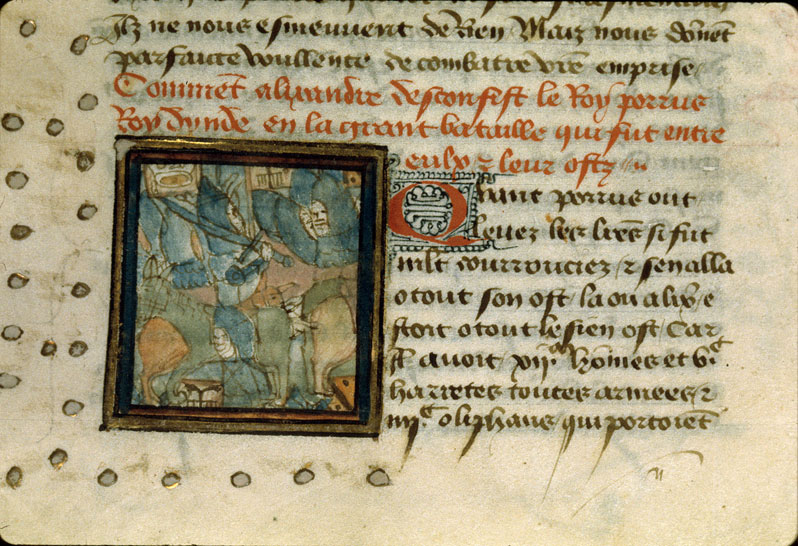 Ilz ne nous esmeuvent de Rien Maiz nous dõnent
parfaicte voullente de combatre vrẽ emprise
Commẽt alixandre desconfist le Roy porrus
Roy dynde en la grant bataille qui fut entre
eulx ⁊ leur ostz
Quant porrus out
leuez les lrẽs si fut
mlt courrouciez ⁊ sen alla
o tout son ost la ou alixẽ
estoit o tout le sien ost Car
Il avoit xiiᵃ hom̃es et vᶜ
harretes toutes armees ⁊
iiiiᶜ oliphans qui portoiẽt